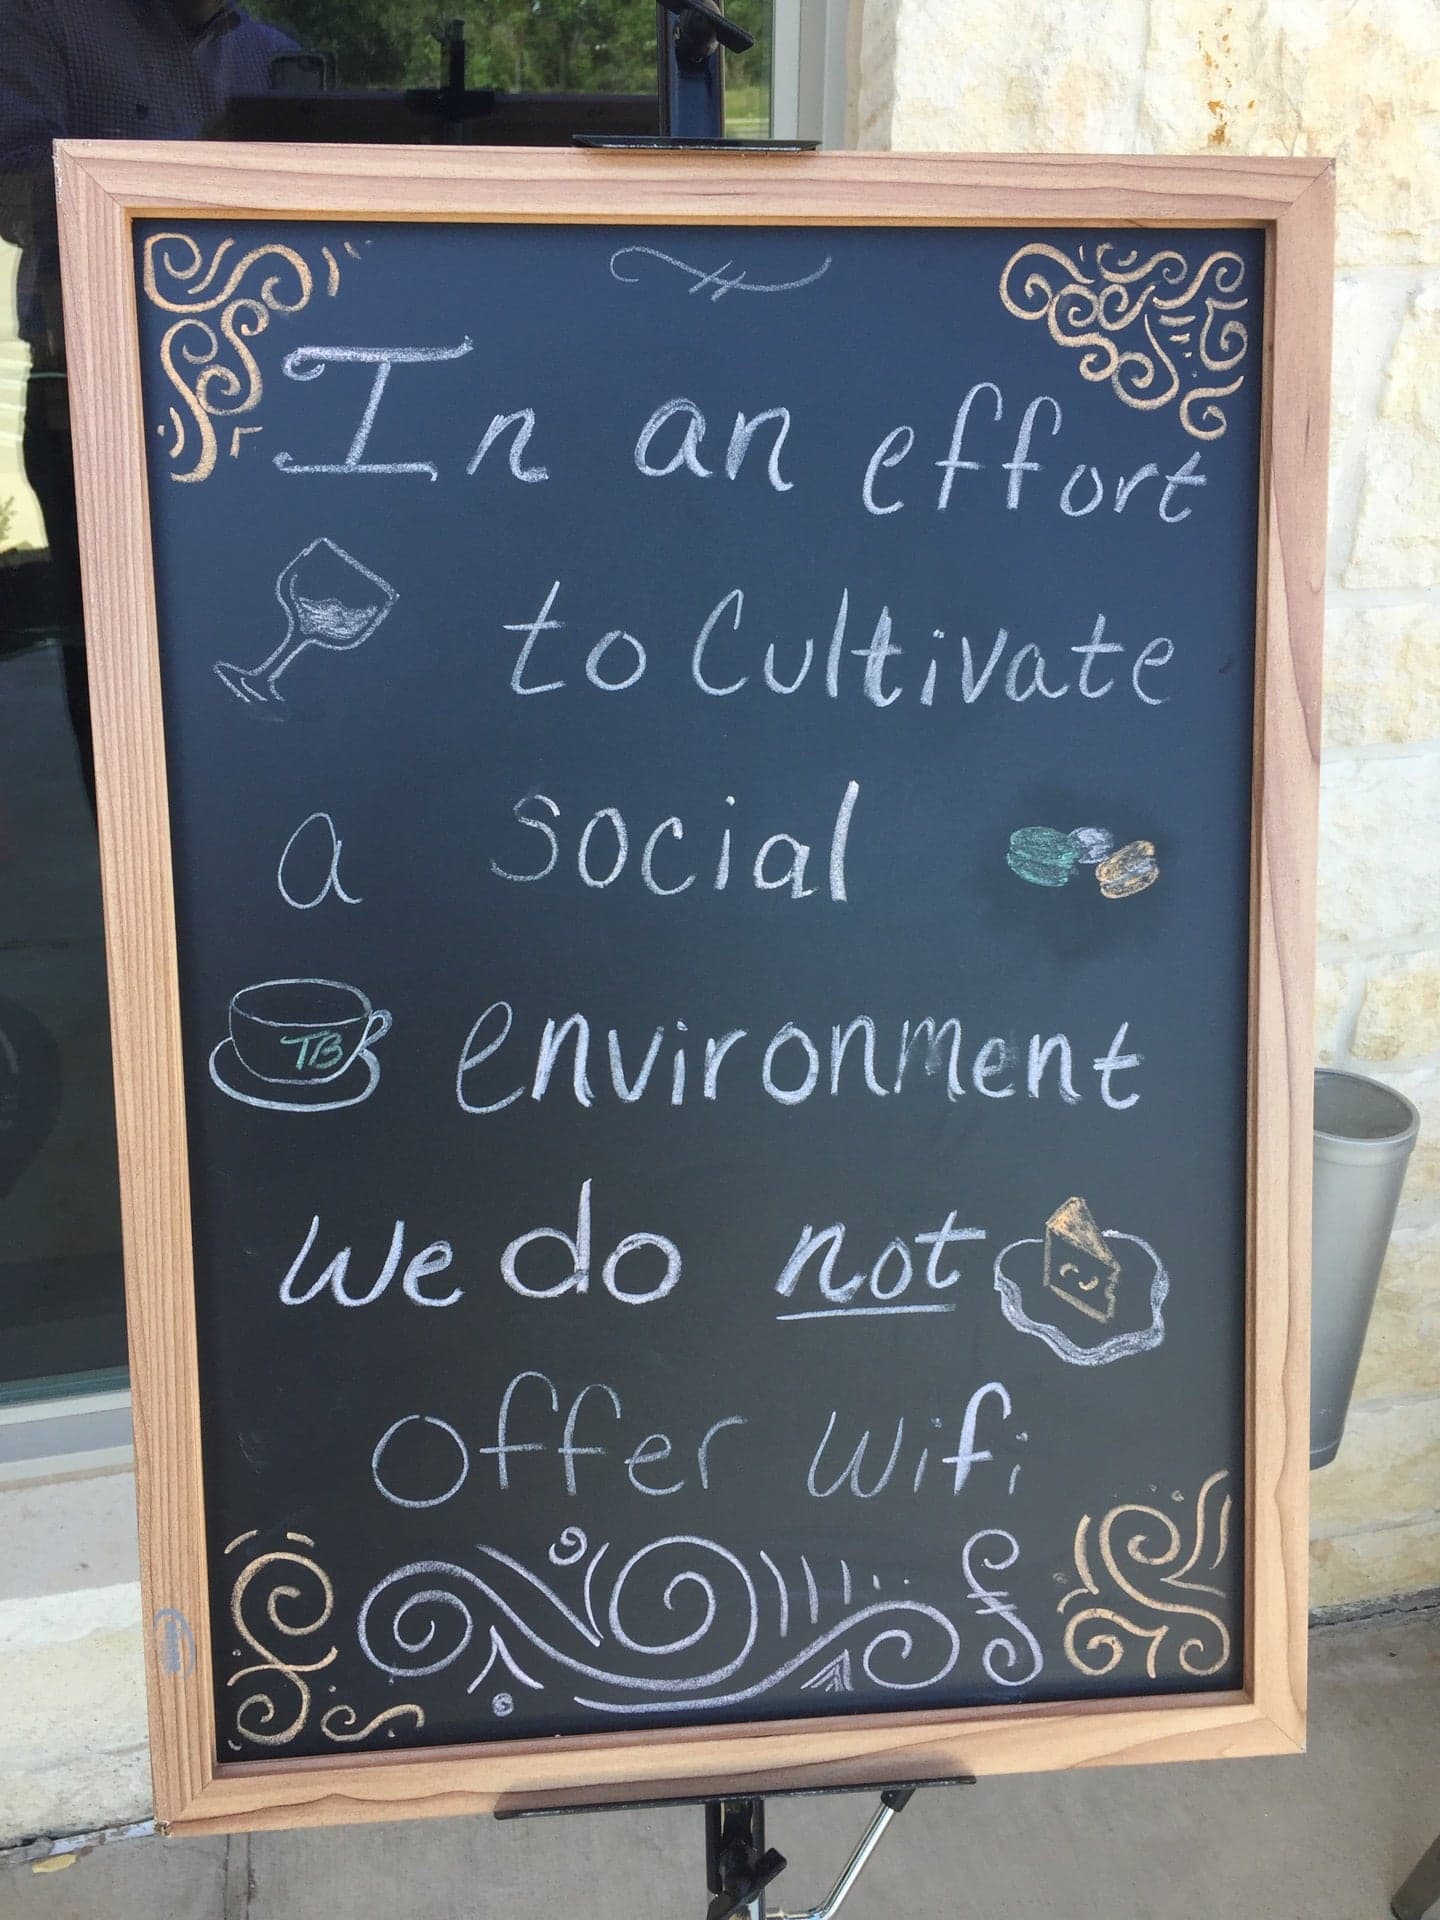 In an effort
to Cultivate
a social
TB environment
We do not
offer wifi